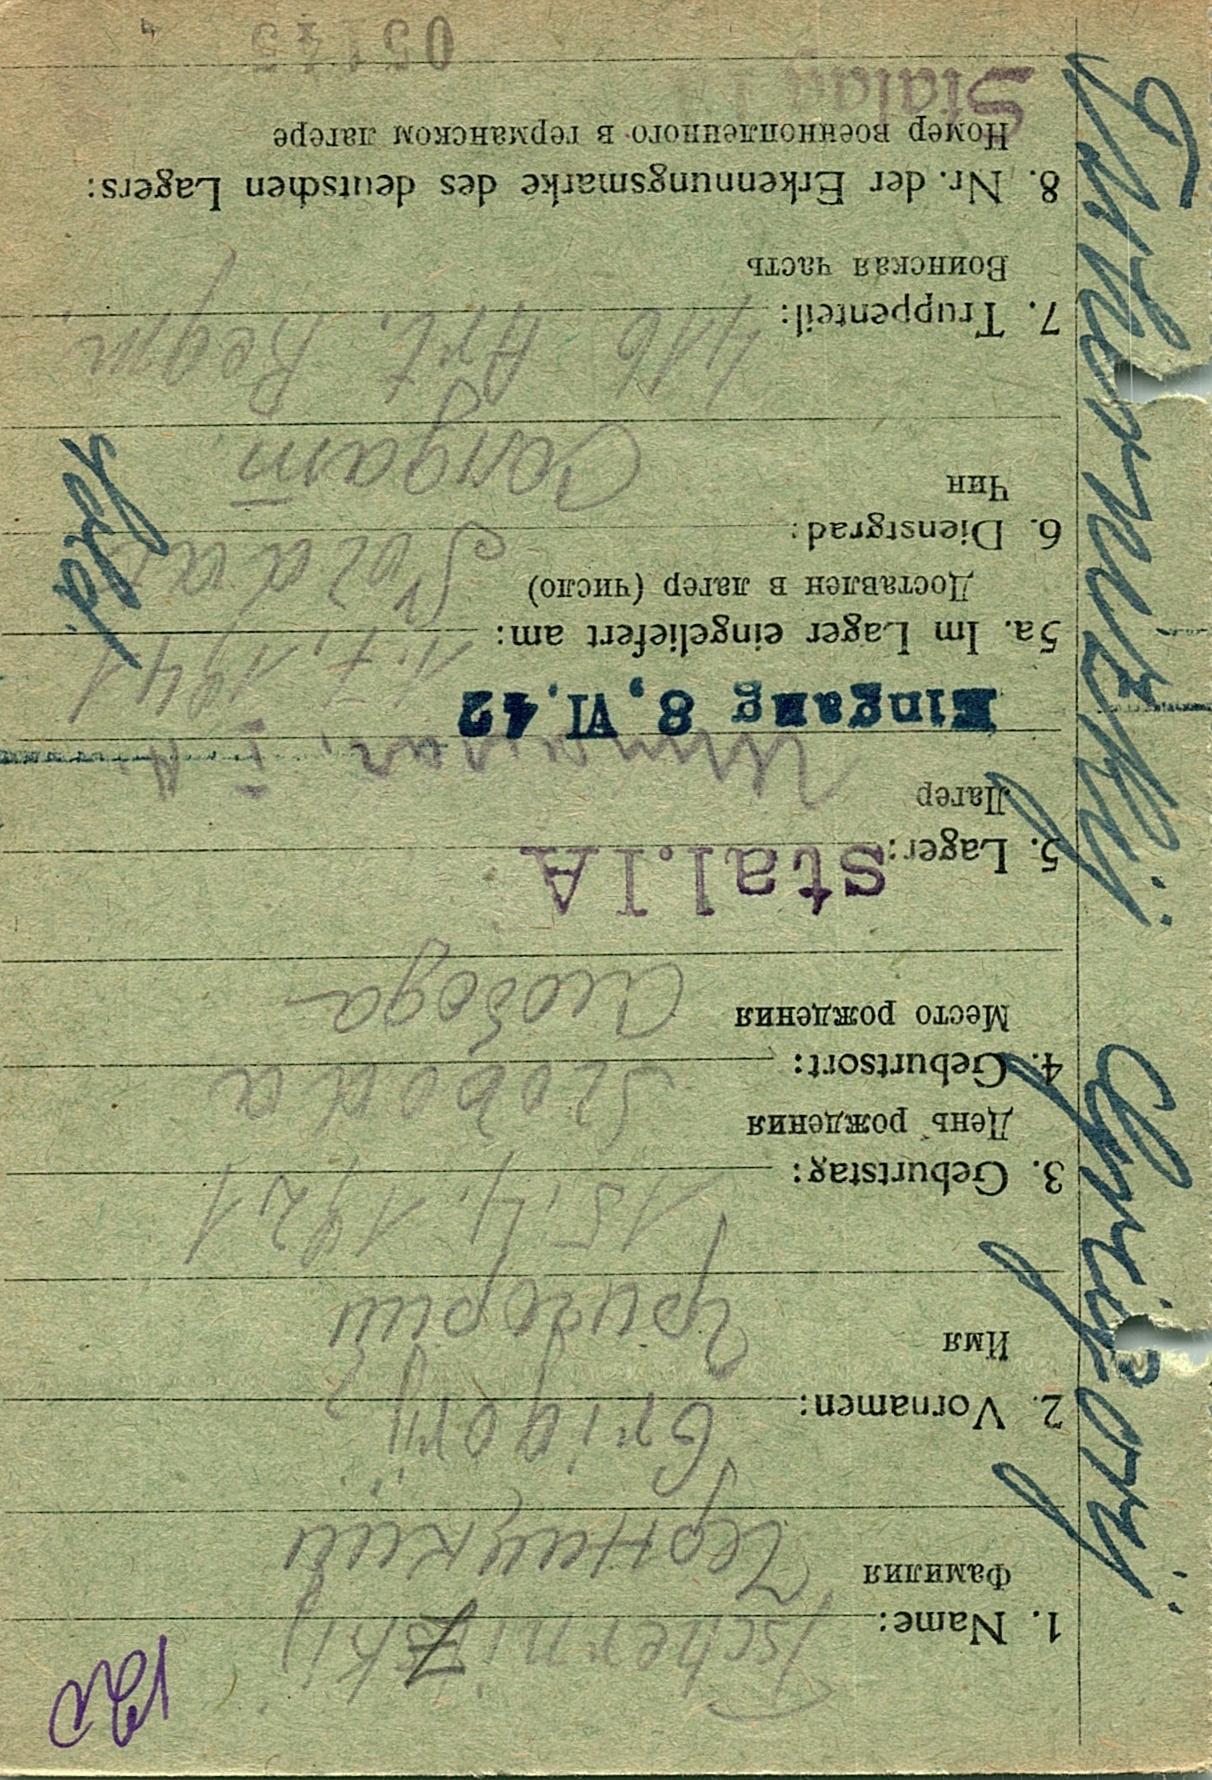 1. Name: Tschernizkij
Фамилия Черницкий
2. Vornamen: Grigorij
Имя Григорий
3. Geburtstag: 15.4.1921
День рождения
4. Geburtsort: Sloboda
Место рождения Слобода
5. Lager: Stal. IA
Лагер
Eingang 8. VI. 42
5a. Im Lager eingeliefert am: 1.7.1941
Доставлен в лагер (число)
6. Dienstgrad: Soldat
Чин Солдат
Sold.
7. Truppenteil: 416 Art. Regm.
Воинская часть
8. Nr. der Erkennungsmarke des deutschen Lagers:
Номер военнопленного в германском лагере
Stalag
05145
Grigorij